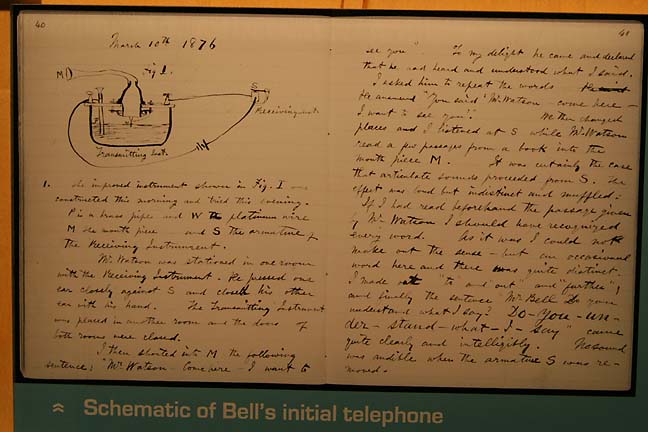 40
March 10th 1876
Fig 1.
M
S
Receiving Inst.
P
W
Transmitting Inst.
1. The improved instrument shown in Fig. I was
constructed this morning and tried this evening.
P is a brass pipe and W the platinum wire
M the mouth piece and S the armature of
the Receiving Instrument.
Mr. Watson was stationed in one room
with the Receiving Instrument. He pressed one
ear closely against S and closed his other
ear with his hand. The Transmitting Instrument
was placed in another room and the doors of
both rooms were closed.
I then shouted into M the following
sentence: "Mr. Watson - Come here - I want to
41
see you". To my delight he came and declared
that he had heard and understood what I said.
I asked him to repeat the words.
He answered "You said 'Mr. Watson - come here -
I want to see you'." We then changed
places and I listened at S while Mr. Watson
read a few passages from a book into the
mouth piece M. It was certainly the case
that articulate sounds proceeded from S. The
effect was loud but indistinct and muffled.
If I had read beforehand the passage given
by Mr. Watson I should have recognized
every word. As it was I could not
make out the sense - but an occasional
word here and there was quite distinct.
I made out "to" and "out" and "further";
and finally the sentence "Mr. Bell Do you
understand what I say? Do-you-un-
der-stand-what-I-say" came
quite clearly and intelligibly. No sound
was audible when the armature S was re-
moved.
Schematic of Bell's initial telephone